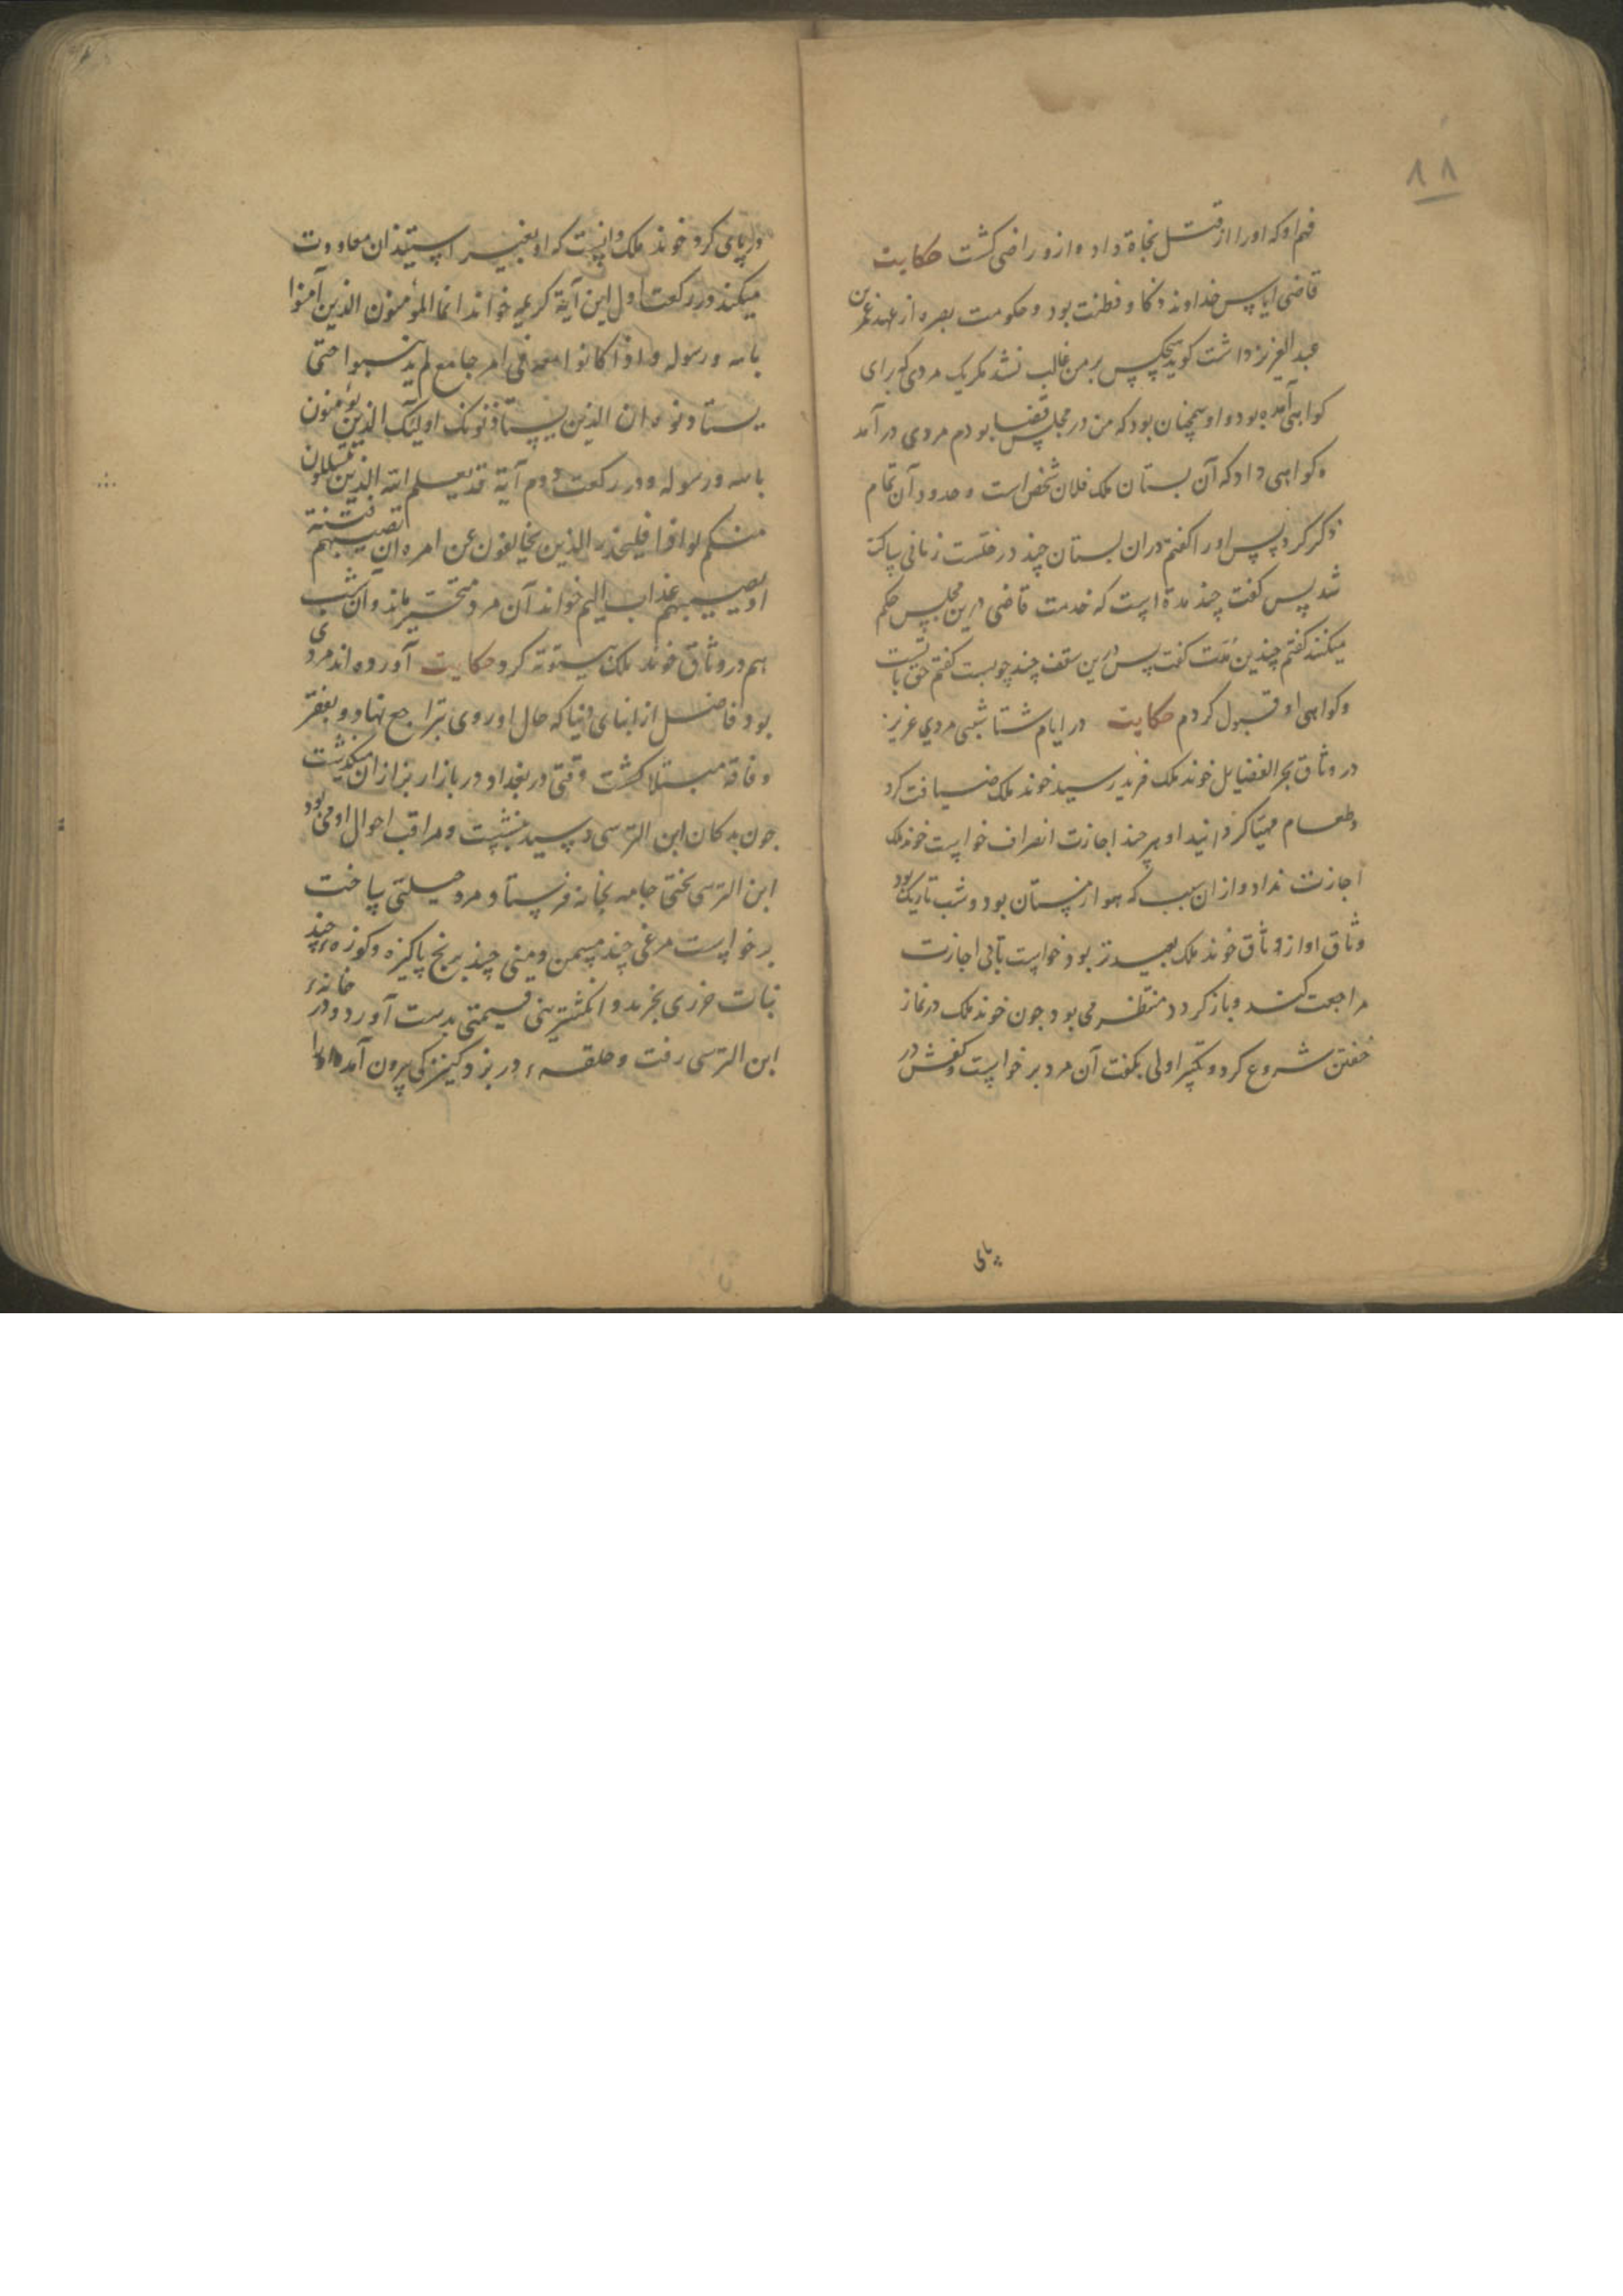 ۸۸
فهم او که او را از قتل نجاة داد و ازو راضی کشت حکایت
قاضی ایاس خداوند ذکا و فطنت بود و حکومت بصره از عهد عمر بن
عبد العزیز داشت کوید هیچکس بر من غالب نشد مکر یک مردی که برای
کواهی آمده بود و او همچنان بود که من در مجلس قضا بودم مردی در آمد
و کواهی داد که آن بستان ملک فلان شخص است و حدود آن تمام
ذکر کرد پس او را کفتم در ان بستان چند درختست زمانی ساکت
شد پس کفت چند مدة است که خدمت قاضی درین مجلس حکم
میکنند کفتم چندین مدت کفت پس درین سقف چند چوبست کفتم حق با تست
و کواهی او قبول کردم حکایت در ایام شتا شبی مردی عزیز
در وثاق بحر الفضایل خوند ملک فرید رسید خوند ملک ضیافت کرد
و طعام مهیا کردانید او هر چند اجازت انصراف خواست خوند ملک
اجازت نداد و از ان سبب که هوا زمستان بود و شب تاریک بود
وثاق او از وثاق خوند ملک بعیدتر بود خواست تا بی اجازت
مراجعت کند و باز کردد منتظر می بود جون خوند ملک در نماز
خفتن شروع کرد و تکبیر اولی بکفت آن مرد بر خواست و کفش در
پای
در پای کرد خوند ملک دانست که او بغیر استیذان معاودت
میکند در رکعت اول این آیة کریمه خواند انما المؤمنون الذین آمنوا
بالله و رسوله و اذا کانوا معه فی امر جامع لم یذهبوا حتی
یستاذنوه ان الذین یستاذنونک اولیک الذین یؤمنون
بالله و رسوله و در رکعت دوم آیة قد یعلم الله الذین یتسللون
منکم لواذا فلیحذر الذین یخالفون عن امره ان تصیبهم فتنة
او یصیبهم عذاب الیم خواند آن مرد متحیر بماند و آن شب
هم در وثاق خوند ملک بیتوته کرد حکایت آورده اند مردی
بود فاضل از ابنای دنیا که حال او روی بتراجع نهاد و بفقر
و فاقه مبتلا کشت وقتی در بغداد در بازار بزازان میکذشت
جون بدکان ابن الترسی رسید بنشست و مراقب احوال او می بود
ابن الترسی تختی جامه بخانه فرستاد مرد حیلتی ساخت
برخواست مرغی چند مسمن و منی چند برنج پاکیزه و کوزه چند
نبات خزری بخرید و انکشترینی قیمتی بدست آورد و در خانهء
ابن الترسی رفت و حلقهء در بزد کنیزکی بیرون آمد او را